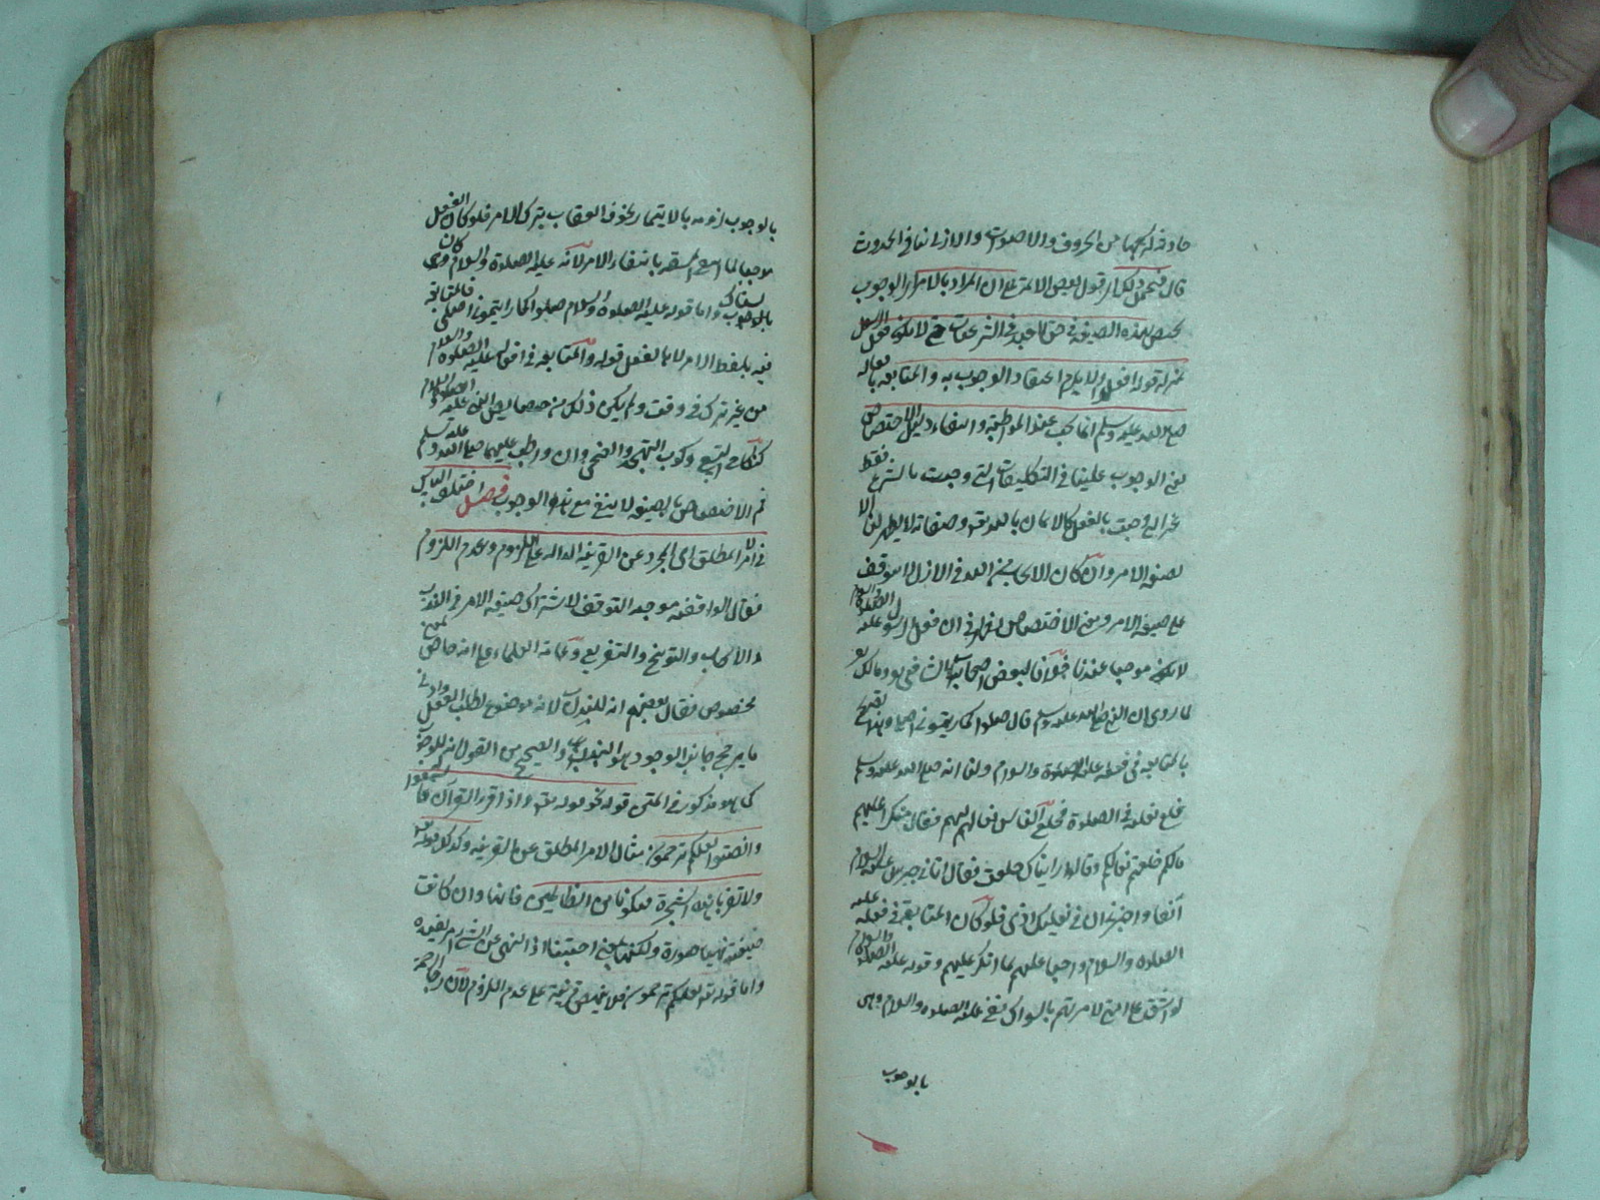 حادثة لتركبها من الحروف والاصوات والازل ينافي الحدوث
قال فيحمل ذلك قول بعض الائمة على ان المراد بالامر الوجوب
يختص بهذه الصيغة في حق العبد في الشرعيات حتى لا يكون فعل الرسول
بمنزلة قوله افعلوا ولا يلزم اعتقاد الوجوب به والمتابعة بافعاله
صلى الله عليه وسلم انما تجب عند المواظبة وانتفاء دليل الاختصاص
يعني الوجوب علينا في التكليفات التي وجبت بالشرع فقط
بالفعل كالايمان بالله وصفاته لا يظهر لنا الا
لصيغة الامر وان كان الايجاب من الله في الازل لا يتوقف
على صيغة الامر ومعنى الاختصاص يظهر في ان فعل الرسول عليه الصلوة والسلام
لا يكون موجبا عندنا خلافا لبعض اصحاب الشافعي ومالك
لما روي ان النبي صلى الله عليه وسلم قال صلوا كما رأيتموني اصلي وهذا تصريح
بالمتابعة في فعله عليه الصلوة والسلام ولنا انه صلى الله عليه وسلم
خلع نعله في الصلوة فخلع الناس نعالهم فقال منكرا عليهم
مالكم خلعتم نعالكم وقالوا رايناك خلعت فقال اتاني جبريل عليه السلام
آنفا واخبرني ان في نعليك اذى فلو كان المتابعة في فعله عليه
الصلوة والسلام واجبا عليهم لما انكر عليهم وقوله عليه الصلوة والسلام
لولا ان اشق على امتي لامرتهم بالسواك نفى عليه الصلوة والسلام
بالوجوب
بالوجوب بالايتمار بخوف العقاب بترك الامر فلو كان الفعل
موجبا لما بانتفاء الامر لانه عليه الصلوة والسلام كان
بالوجوب واما قوله عليه الصلوة والسلام صلوا كما رأيتموني اصلي فالمتابعة
فيه بلفظ الامر لا بالفعل قوله والمتابعة في افعاله عليه الصلوة والسلام
من غير ترك في وقت ولم يكن ذلك من خصايص النبي عليه الصلوة والسلام
كنكاح التسع وكوجوب التهجد والضحى وان واظب عليهما صلى الله عليه وسلم
ثم الاختصاص بالصيغة لا ينفي مع الوجوب فصل اختلف الناس
في الامر المطلق اى المجرد عن القرينة الدالة على اللزوم وعدم اللزوم
فقال الواقفية موجبه التوقف لاشتراك صيغة الامر في الندب
والايجاب والتوبيخ والتقريع وعامة العلماء على انه خاص لمعنى
مخصوص فقال بعضهم انه للندب لانه موضوع لطلب الفعل وادنى
ما يرجح جانب الوجود هو الندب والصحيح من القول انه للوجوب
كما هو مذكور في المتن قوله نحو قوله تعالى واذا قرئ القرآن فاستمعوا
وانصتوا لعلكم ترحمون مثال الامر المطلق عن القرينة وكذلك قوله تعالى
ولا تقربا هذه الشجرة فتكونا من الظالمين فانها وان كانت
صيغة نهيا صورة ولكنها بمعنى اجتنبا اذ النهي عن الشئ امر بضده
واما قوله تعالى لعلكم ترحمون فلا يخلص قرينة على عدم اللزوم لان رجا الرحمة